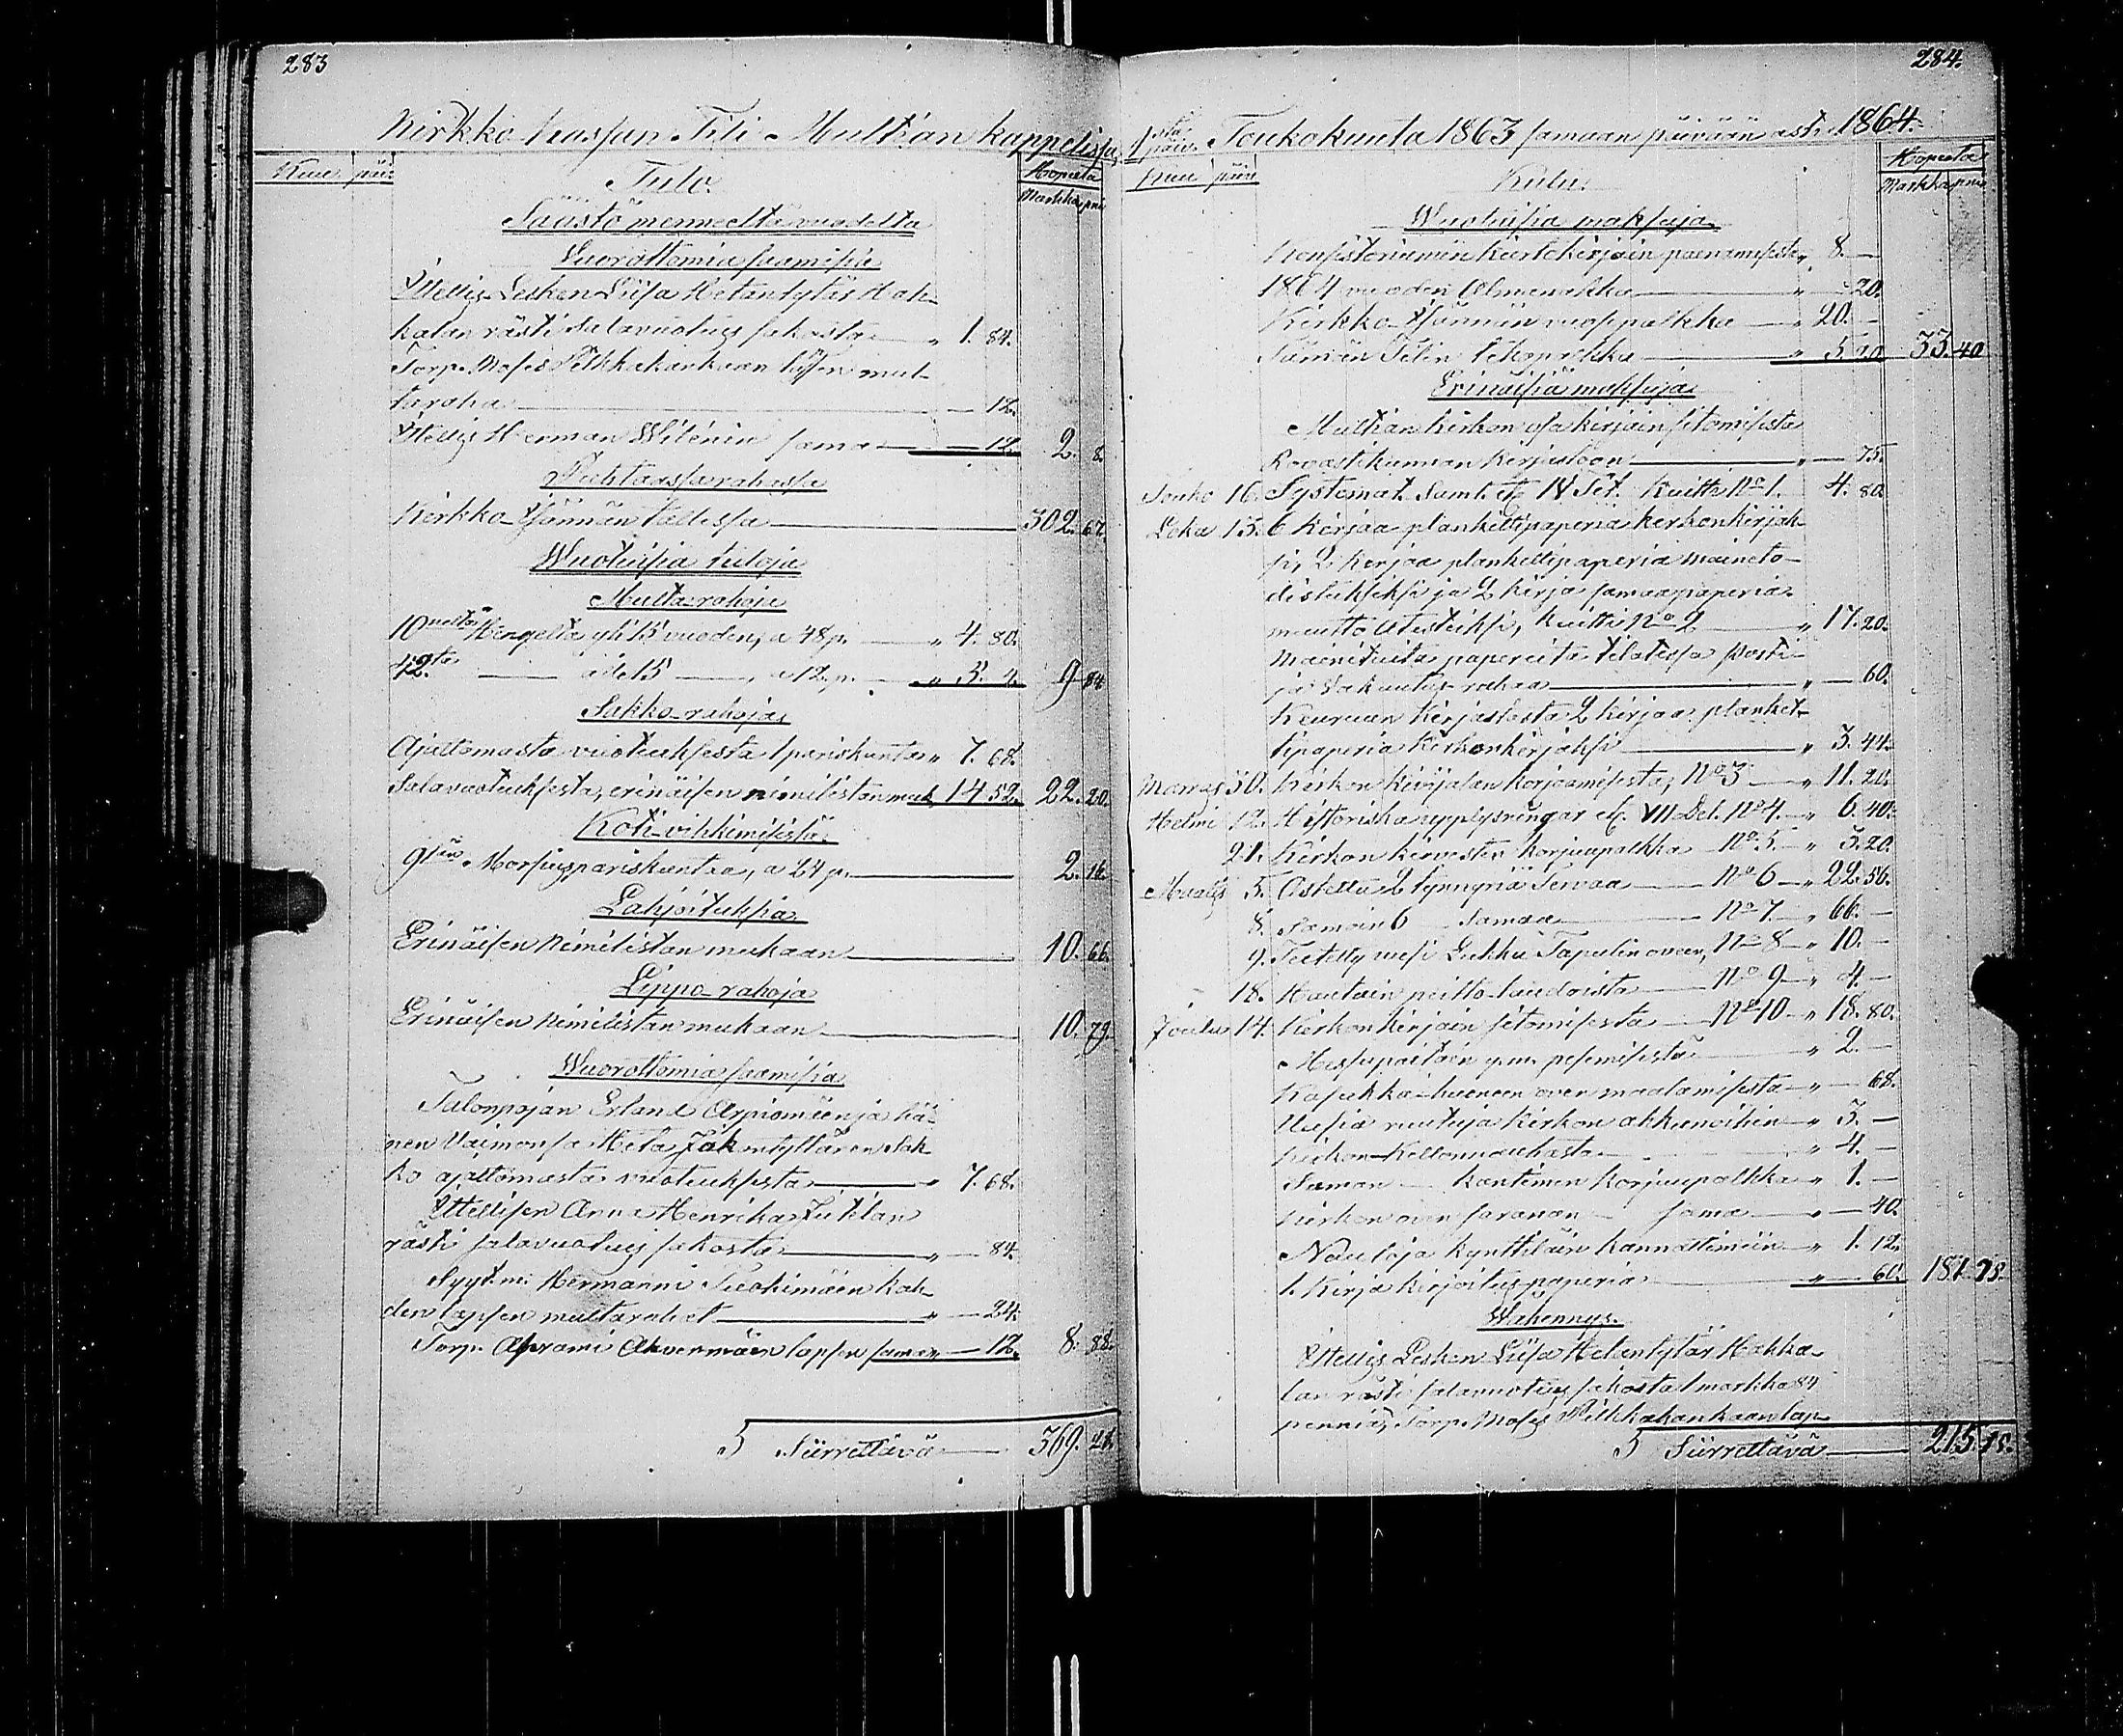 283
Kirkko-kassan Tili Multian kappelissa
Kuu päiv. Tulo. Hopeata
Markka pen
Säästö menneeltä vuodelta
Vuorottomia saamisia
Ittellis Lesken Liisa Hetantytär Hak-
kalan rästi salavuoteus sakosta " 1. 84.
Torp. Moses Pilkkakankaan lapsen mul-
taraha — 12.
Ittellis Herman Wilénin sama — 12. 2. 8.
Puhtaassa rahassa
Kirkko-Isännän kallessa 302. 67.
Wuotuisia tuloja
Multa-rahoja
10neltä Hengeltä yli 15 vuoden, a 48 p. " 4. 80.
42.ta — ale 15 —, a 12 p. " 5. 4. 9 84
Sakko-rahoja
Ajattomasta vuoteuksesta 1 pariskunta " 7. 68.
Salavuoteuksesta, erinäisen nimilistan muk. 14 52. 22. 20.
Koti-vihkimisistä.
9län Morsiuspariskuntaa, a 24 p. 2. 16.
Lahjoituksia
Erinäisen Nimilistan mukaan 10. 66.
Lippo-rahoja
Erinäisen Nimilistan mukaan 10. 79.
Wuorottomia saamisia
Talonpojan Erland Arpiomäen ja hä-
nen Vaimonsa Heta Jäk intyttären Sak-
ko ajattomasta vuoteuksesta " 7. 68.
Ittellisen Anna Henrika
rästi salavuoteus sakosta " — 84.
Hermanni kah-
den lapsen multarahat " — 24.
Torp. Aprami Ahvenmäen lapsen sama " — 12. 8. 88.
5 Siirrettävä 369. 28.
284.
1stä päiv. Toukokuuta 1863 samaan päivään asti 1864.
Kuu päiv. Kulu. Hopeata
Markka pen
Wuotuisia maksuja
Konsistoriumin kiertokirjain painamisesta " 8. —
1864 vuoden Almanakka " — 20.
Kirkko-Isännän vuospalkka — 20. —
Tämän Tilin tekopalkka " 5. 20 33. 40
Erinäisiä maksuja
Multian kirkon osa kirjain sitomisesta
Rovastikunnan kirjastoon " — 75.
Touko 16. Systemat. Saml. etc IV Del. Kuitti No 1. 4. 80.
Loka 15. 6 Kirjaa plankettipaperia kirkonkirjak-
si, 2 kirjaa plankettipaperia maineto-
distuksiksi ja 2 kirja samaa paperia
muutto Atestuiksi, Kuitti No 2 " 17. 20.
Mainituita papereita tilatessa Posti-
ja Vakuutus-rahaa " — 60.
Keuruun Kirjastosta 2 kirjaa planket-
tipaperia kirkonkirjaksi " 3. 44.
Marras 30. Kirkon kirjalan korjaamisesta, No 3 " 11. 20.
Helmi 12. Historiska upplysningar etc. VII Del. No 4. " 6. 40.
21. Kirkon kirvesten korjuupalkka No 5. " 3. 20.
Maalis 5. Ostettu 2 tynnyriä Tervaa No 6 " 22. 56.
8. Samoin 6 Samaa No 7 " 66. —
9. Teetetty uusi Lukku Tapulin oveen, No 8 " 10. —
18. Hautain peitto-laudoista No 9 " 4. —
Joulu 14. Kirkonkirjain sitomisesta No 10 " 18. 80.
Messupaitain y.m. pesemisestä " 2. —
Kasukka-huoneen oven maalamisesta " — 68.
Uusia ruutuja kirkon akkunoihin " 3. —
Kirkon-Kellonnauhasta " 4. —
Saman kantimen korjuupalkka " 1. —
Kirkon oven saranan sama " — 40.
Nauloja kynttiläin kannattimiin " 1. 12.
1. Kirja kirjoituspaperia " — 60. 181. 75.
Wähennys.
Ittellis Lesken Liisa Hetantytär Hakka-
lan rästi salavuoteus sakosta 1 markka 84
penniä, Torp. Moses Pilkkakankaan lap-
5 Siirrettävä 215. 15.